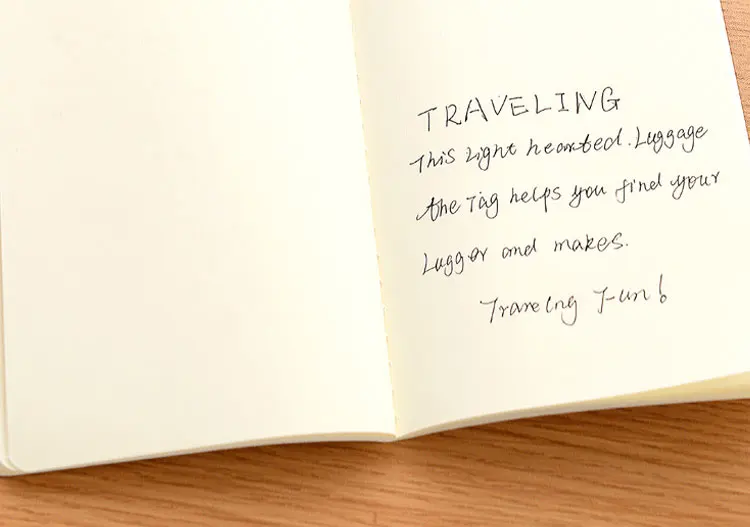 TRAVELING
This Light hearted. Luggage
the Tag helps you find your
Luggor and makes.
Traveing Fun!